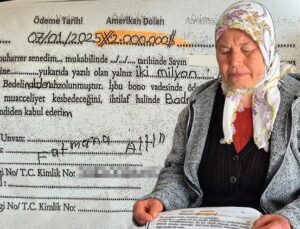 Ödeme Tarihi Amerikan Doları
07/01/2025 2.000.000$
muharrer senedim... mukabilinde .../.../... tarihinde Sayın
ine.......yukarıda yazılı olan yalnız iki milyon
Bedeli olunmuştur. İşbu bono vadesinde öd
muacceliyet kesbedeceğini, ihtilaf halinde Bodr
endiden kabul ederim
Unvan:
Fatmana Altın
gi No/ T.C. Kimlik No:
gi No/ T.C. Kimlik No: